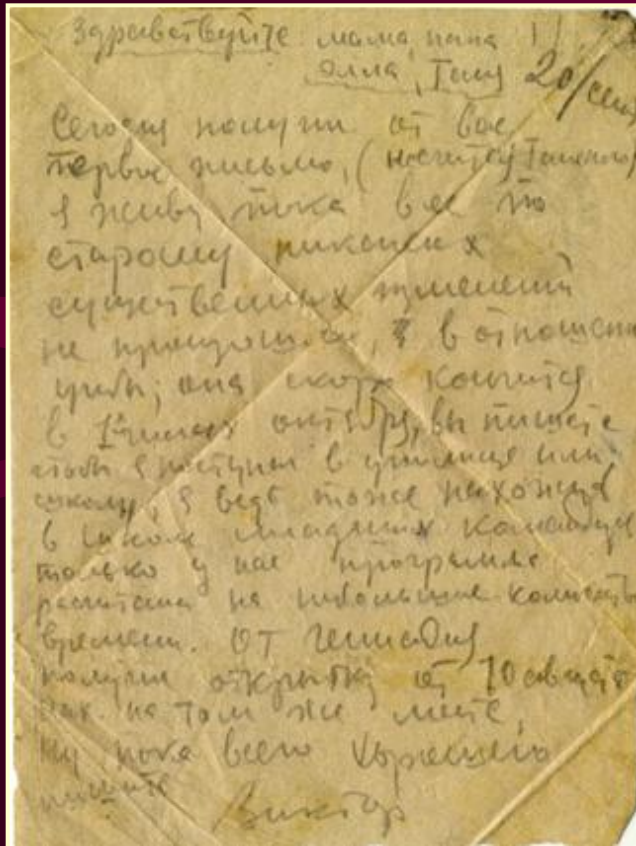 Здравствуйте мама, папа
Алла, Таня 20/сент
Сегодня получил от вас
первое письмо, (несчитая Таниного)
я живу пока все по
старому никаких
существенных изменений
не произошло, в отношении
учебы; она скоро кончится
в числах октября, вы пишете
чтобы я поступил в училище или
школу, я ведь тоже нахожусь
в школе младших командиров
только у нас программа
расчитана на небольшие количества
времени. От Геннадия
получил открытку от 10 августа
на том же месте,
Ну пока всего хорошего
пишите
Виктор